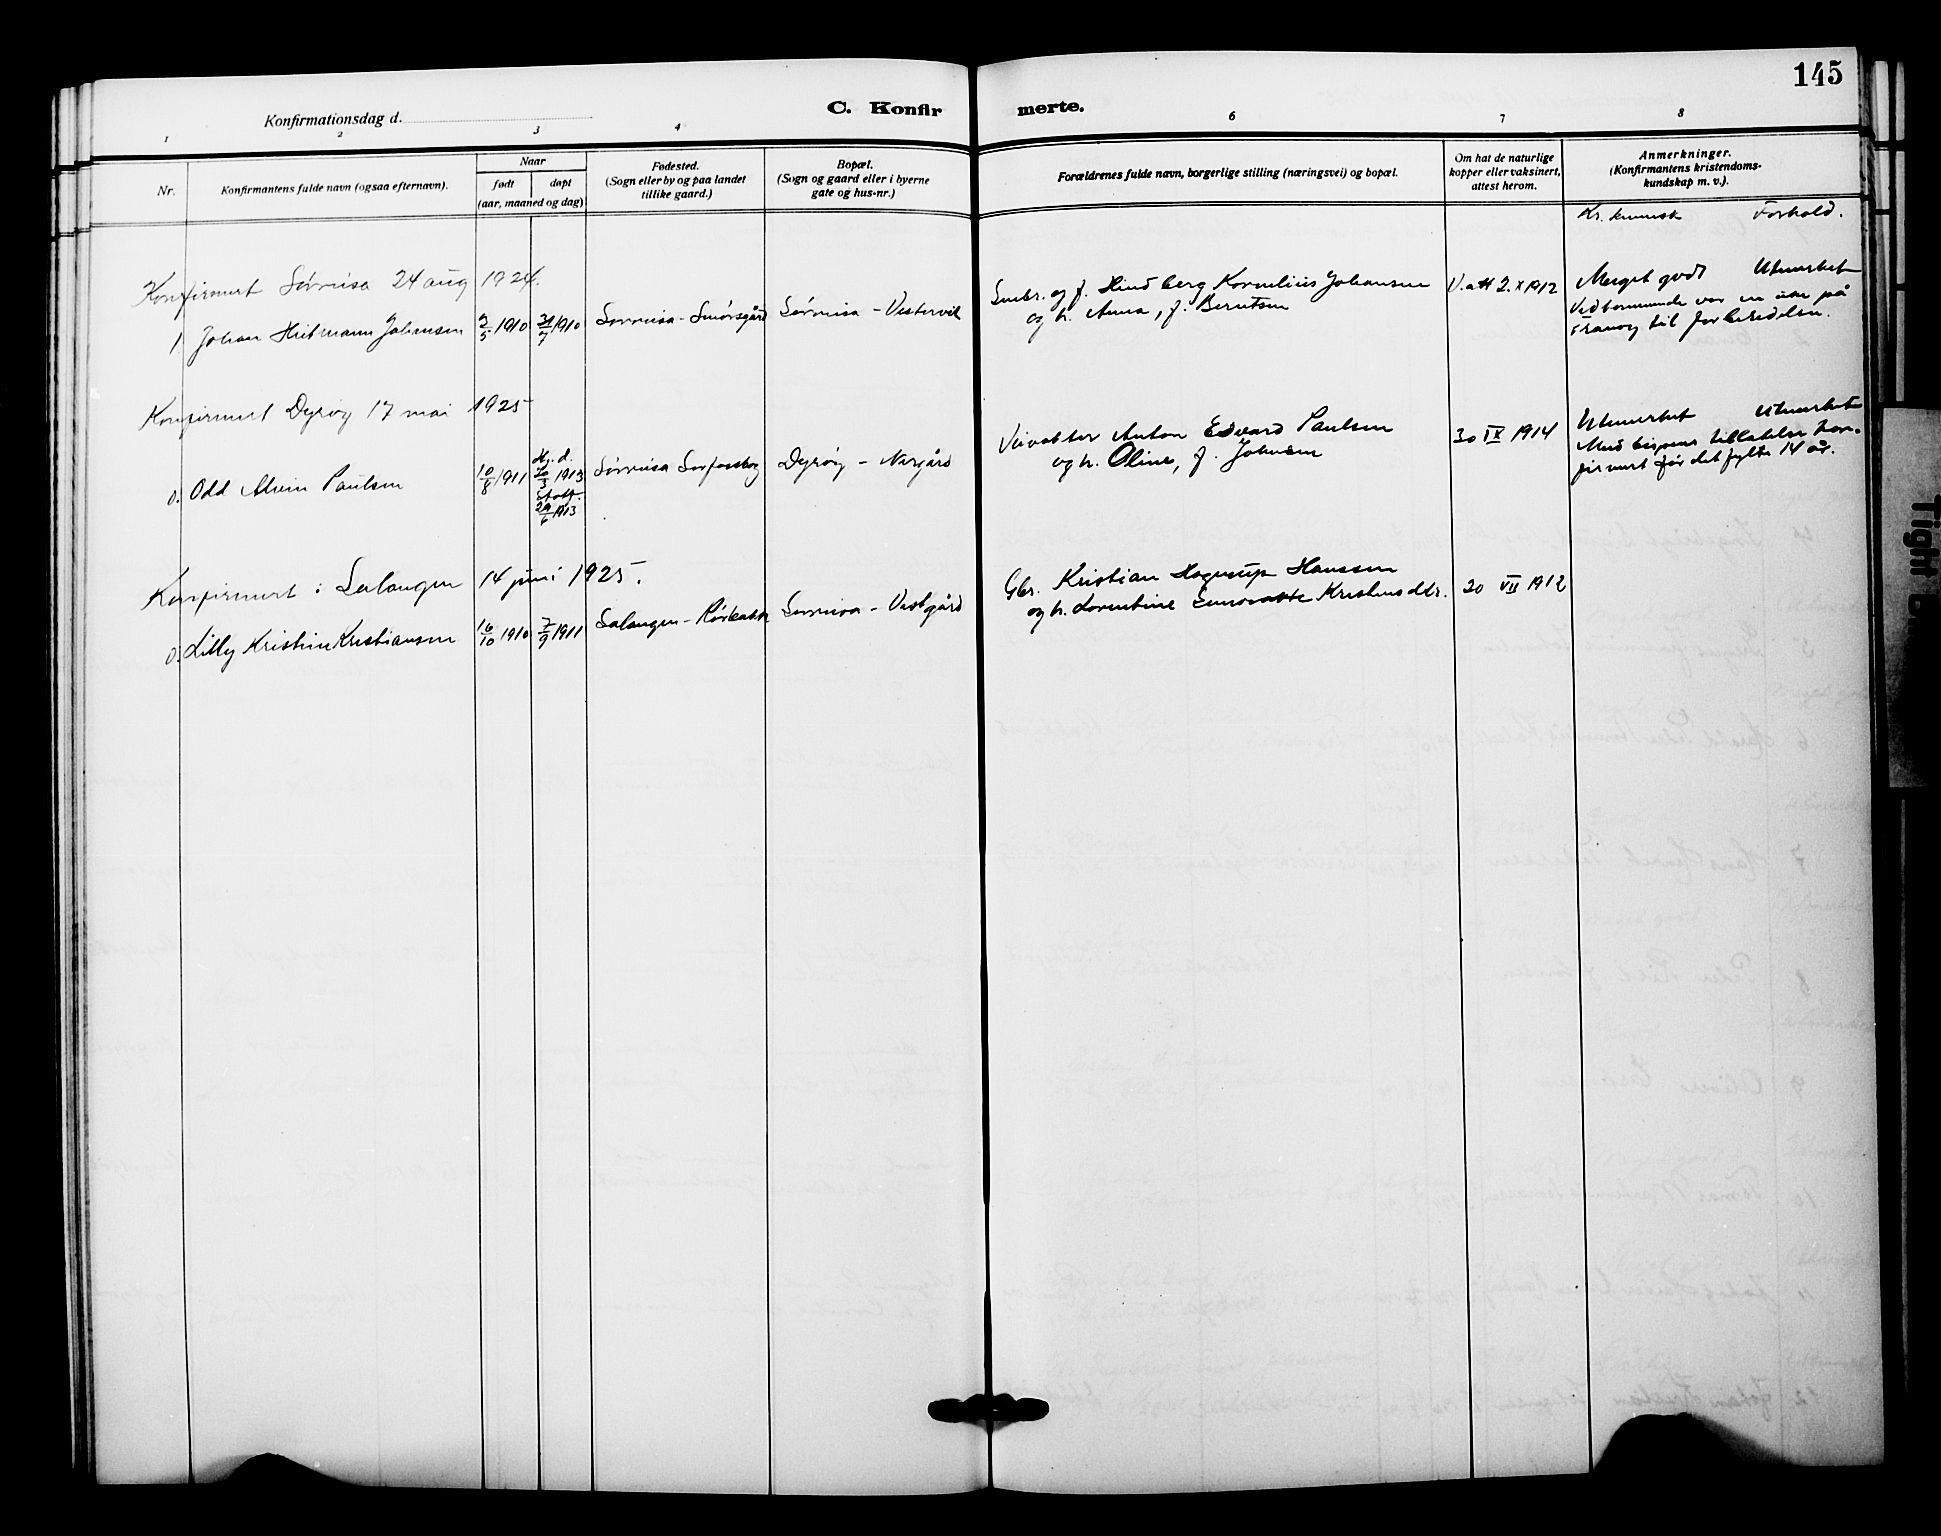 145
Konfirmationsdag d.
C. Konfir merte.
1 2 3 4 6 7 8
Nr.
Konfirmantens fulde navn (ogsaa efternavn).
Naar
født
døpt
(aar, maaned og dag)
Fødested.
(Sogn eller by og paa landet
tillike gaard.)
Bopæl.
(Sogn og gaard eller i byerne
gate og hus-nr.)
Forældrenes fulde navn, borgerlige stilling (næringsvei) og bopæl.
Om hat de naturlige
kopper eller vaksinert,
attest herom.
Anmerkninger.
(Konfirmantens kristendoms-
kundskap m. v.).
Kr. kunnsk Forhold.
Konfirmert Sørreisa 24 aug 1924.
1. Johan Johansen 2/5 1910 31/7 1910 Sørreisa - Smørsgård Sørreisa - Vestervik
Smbr. og f. Hind berg Kornelius Johansen
og h. Anna, f. Berntsen
V. att 2. X 1912
Meget godt Utmerket
Vedkommende var en uke på
Tranøy til forberedelse.
Konfirmert Dyrøy 17 mai 1925
0. Odd Alvin Paulsen 10/8 1911 Hj. d. 26/3 1913 Stadf. 29/6 1913 Sørreisa Dyrøy - Nergård
Veivokter Anton Edvard Paulsen
og h. Oline, f. Johnsen
30 IX 1914
Utmerket Utmerket
Med bispens tillatelse kon-
firmert før det fylte 14 år.
Konfirmert i Salangen 14 juni 1925.
0. Lilly Kristine Kristiansen 16/10 1910 7/9 1911 Salangen - Sørreisa - Vestgård
Gbr. Kristian Hagerup Hanssen
og h. Lorentine Kristensdtr.
20 VII 1912
Tight